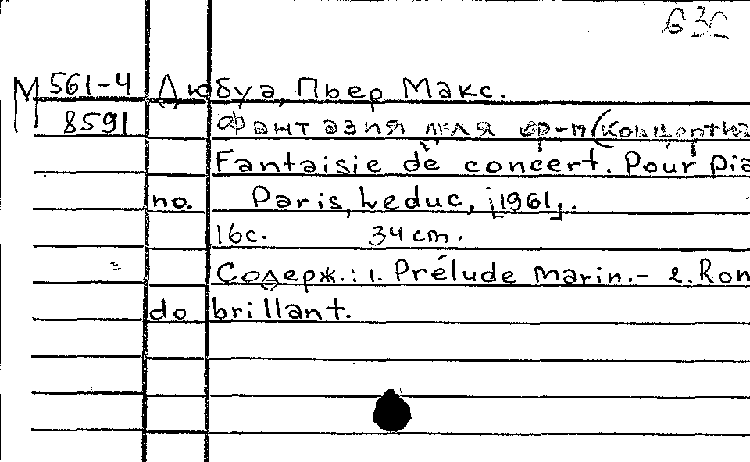 М 561-4 Дюбуа, Пьер Макс.
8591 Фантазия для ф-п (Концертная
Fantaisie de concert. Pour pia
no. Paris, Leduc, [1961].
16с. 34 cm.
Содерж.: 1. Prélude marin.- 2. Ron
do brillant.